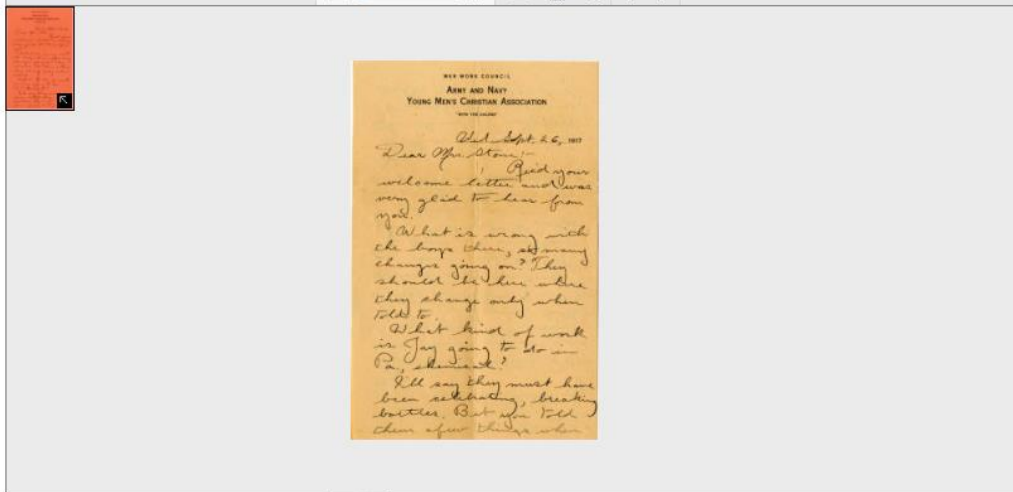 WAR WORK COUNCIL
ARMY AND NAVY
YOUNG MEN'S CHRISTIAN ASSOCIATION
"WITH THE COLORS"
Sept. 26, 1917
Dear Mrs. Stone:-
Rec'd your
welcome letter and was
very glad to hear from
you.
What is wrong with
the boys there, so many
changes going on? They
should be here where
they change only when
told to.
What kind of work
is Jay going to do in
Pa, chemical?
I'll say they must have
been celebrating, breaking
bottles. But you told
them afew things when